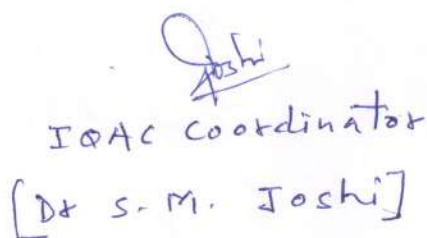 Joshi
IQAC Coordinator
[Dr S. M. Joshi]